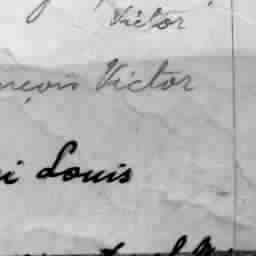 Victor
nçois Victor
i Louis